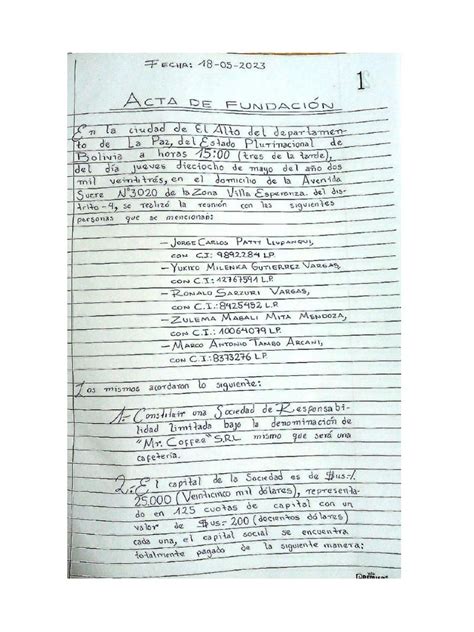 FECHA: 18-05-2023
1
ACTA DE FUNDACIÓN
En la ciudad de El Alto del departamen-
to de La Paz, del Estado Plurinacional de
Bolivia a horas 15:00 (tres de la tarde),
del día jueves dieciocho de mayo del año dos
mil veintitrés, en el domicilio de la Avenida
Sucre N°3020 de la Zona Villa Esperanza. del dis-
trito-4, se realizó la reunión con las siguientes
personas que se mencionan:
- JORGE CARLOS PATTY LLUPANQUI,
CON C.I.: 9892284 L.P.
- YUKIKO MILENKA GUTIERREZ VARGAS,
CON C.I.: 12767591 L.P.
- RONALD SARZURI VARGAS,
CON C.I.: 8425452 L.P.
- ZULEMA MAGALI MITA MENDOZA,
CON C.I.: 10064079 L.P.
- MARCO ANTONIO TAMBO ARCANI,
CON C.I.: 8373276 L.P.
Los mismos acordaron lo siguiente:
1.- Constituir una Sociedad de Responsabi-
lidad limitada bajo la denominación de
"Mr. Coffee" S.R.L mismo que será una
cafetería.
2.- El capital de la Sociedad es de $us.-
25.000 (Veinticinco mil dólares), representa-
do en 125 cuotas de capital con un
valor de $us.- 200 (docientos dólares)
cada una, el capital social se encuentra
totalmente pagado de la siguiente manera: